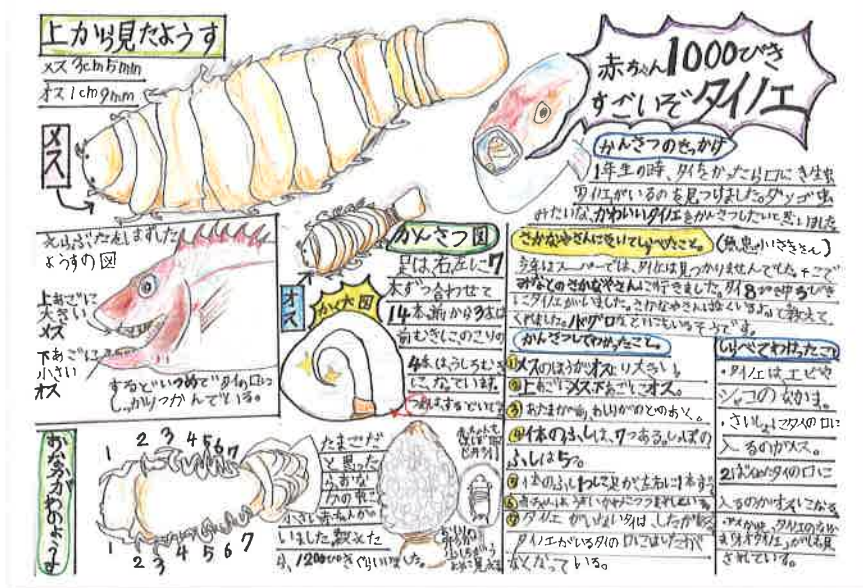 上から見たようす
メス 3cm5mm
オス 1cm9mm
メス
赤ちゃん1000びき
すごいぞタイノエ
かんさつのきっかけ
1年生の時、タイをかったら口にき生虫
タイノエがいるのを見つけました。ダンゴ虫
みたいな、かわいいタイノエをかんさつしたいと思いました
さかなやさんにきいてしらべたこと。
今年はスーパーでは、タイノエは見つかりませんでした。そこで
みなとのさかなやさんに行きました。タイ8ぴき中5ひき
にタイノエがいました。さかなやさんはよくいるよって教えて
くれました。ノドグロなどにもいるそうです。
ようすの図
上あごに
大きい
メス
下あごに
小さい
オス
するどいつめでタイの口に
しっかりつかんでいる。
オス
かんさつ図
足は右左に7
本ずつ合わせて
14本。前から3本は
前むきしこのこりの
4本はうしろむき
に、なっています。
つめは、するどいです
かく大図
かんさつしてわかったこと。
①メスのほうがオスより大きい。
②上あごにメス、下あごにオス。
③
④体のふしは、7つある。しっぽの
ふしは5つ。
⑤体のふし1つに足が左右に1本ずつ
⑥
⑦タイノエがいないタイは、したがある
タイノエがいるタイの口にはしたが
なくなっている。
しらべてわかったこと
・タイノエは、エビや
シャコのなかま。
・さいしょにタイの口に
入るのがメス。
2ばんめにタイの口に
入るのがオスになる
されている。
おなかがわのようす
1 2 3 4 5 6 7
1 2 3 4 5 6 7
たまごだ
と思った
らおな
かの中に
小さい赤ちゃんが
いました。数えた
ら、1200ぴきぐらいいました。